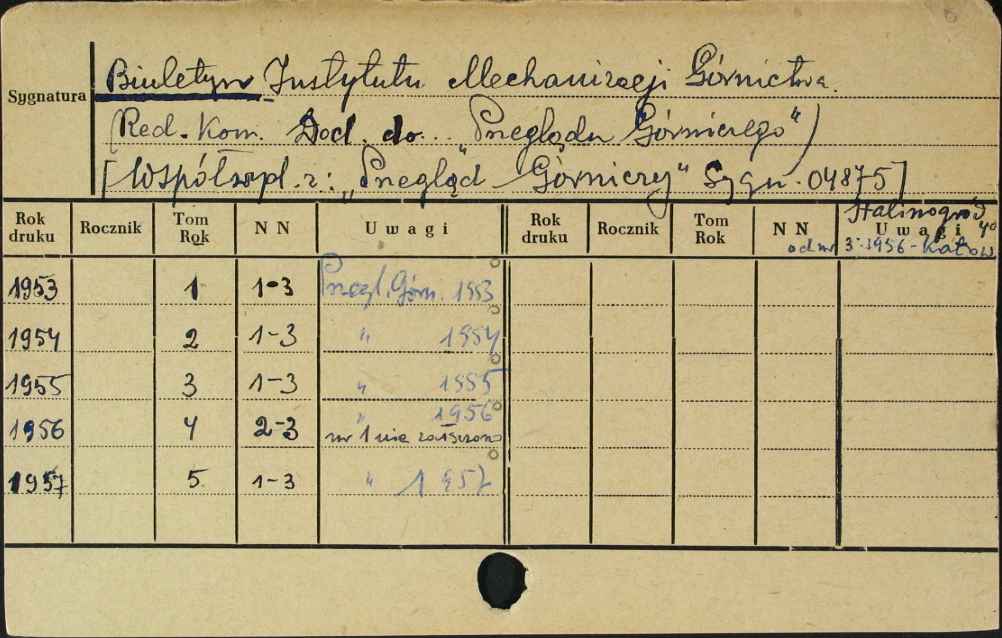 Biuletyn Instytutu Mechanizacji Górnictwa.
Sygnatura
(Red. Kom. Dod. do "Przeglądu Górniczego")
[Współwpl. z: "Przegląd Górniczy" Sygn. 04875]
Stalinogród
Rok druku Rocznik Tom Rok NN Uwagi Rok druku Rocznik Tom Rok NN Uwagi
od nr 3:1956 - Katow
1953 1 1-3 Przegl. Górn. 1953
1954 2 1-3 " 1954
1955 3 1-3 " 1955
1956 4 2-3 " 1956
nr 1 nie
1957 5 1-3 " 1957